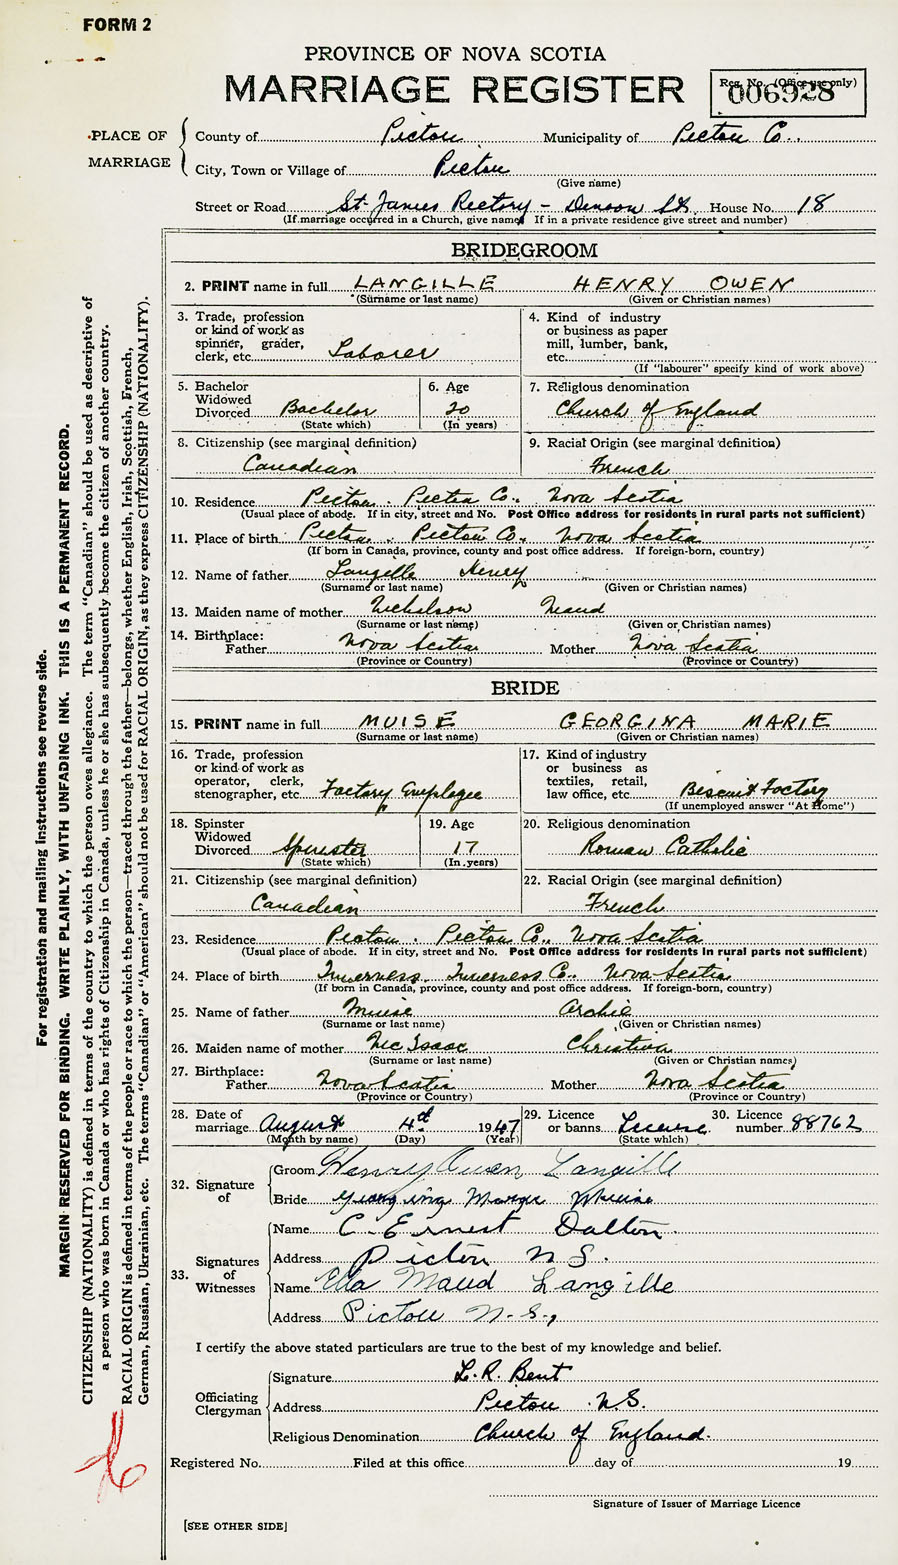 FORM 2
PROVINCE OF NOVA SCOTIA
MARRIAGE REGISTER
Reg. No. (Office use only)
006928
PLACE OF MARRIAGE
County of Pictou Municipality of Pictou Co.
City, Town or Village of Pictou
(Give name)
Street or Road St. James Rectory - Denoon St. House No. 18
(If marriage occurred in a Church, give name. If in a private residence give street and number)
BRIDEGROOM
2. PRINT name in full LANGILLE HENRY OWEN
(Surname or last name) (Given or Christian names)
3. Trade, profession or kind of work as spinner, grader, clerk, etc. Laborer
4. Kind of industry or business as paper mill, lumber, bank, etc.
(If "labourer" specify kind of work above)
5. Bachelor Widowed Divorced Bachelor
(State which)
6. Age 20
(In years)
7. Religious denomination
Church of England
8. Citizenship (see marginal definition)
Canadian
9. Racial Origin (see marginal definition)
French
10. Residence Pictou. Pictou Co. Nova Scotia
(Usual place of abode. If in city, street and No. Post Office address for residents in rural parts not sufficient)
11. Place of birth Pictou. Pictou Co. Nova Scotia
(If born in Canada, province, county and post office address. If foreign-born, country)
12. Name of father Langille Henry
(Surname or last name) (Given or Christian names)
13. Maiden name of mother Nicholson Maud
(Surname or last name) (Given or Christian names)
14. Birthplace:
Father Nova Scotia Mother Nova Scotia
(Province or Country) (Province or Country)
BRIDE
15. PRINT name in full MUISE GEORGINA MARIE
(Surname or last name) (Given or Christian names)
16. Trade, profession or kind of work as operator, clerk, stenographer, etc. Factory Employee
17. Kind of industry or business as textiles, retail, law office, etc. Biscuit Factory
(If unemployed answer "At Home")
18. Spinster Widowed Divorced Spinster
(State which)
19. Age 17
(In years)
20. Religious denomination
Roman Catholic
21. Citizenship (see marginal definition)
Canadian
22. Racial Origin (see marginal definition)
French
23. Residence Pictou. Pictou Co., Nova Scotia
(Usual place of abode. If in city, street and No. Post Office address for residents in rural parts not sufficient)
24. Place of birth Inverness, Inverness Co., Nova Scotia
(If born in Canada, province, county and post office address. If foreign-born, country)
25. Name of father Muise Archie
(Surname or last name) (Given or Christian names)
26. Maiden name of mother McIsaac Christina
(Surname or last name) (Given or Christian names)
27. Birthplace:
Father Nova Scotia Mother Nova Scotia
(Province or Country) (Province or Country)
28. Date of marriage August 4th 1947
(Month by name) (Day) (Year)
29. Licence or banns License
(State which)
30. Licence number 88762
32. Signature of
Groom Henry Owen Langille
Bride Muise
33. Signatures of Witnesses
Name C. Ernest Dalton
Address Pictou N S.
Name Ella Maud Langille
Address Pictou N.S.,
I certify the above stated particulars are true to the best of my knowledge and belief.
Officiating Clergyman
Signature L. R. Bent
Address Pictou N.S.
Religious Denomination Church of England.
Registered No. Filed at this office day of 19
Signature of Issuer of Marriage Licence
[SEE OTHER SIDE]
For registration and mailing instructions see reverse side.
MARGIN RESERVED FOR BINDING. WRITE PLAINLY, WITH UNFADING INK. THIS IS A PERMANENT RECORD.
CITIZENSHIP (NATIONALITY) is defined in terms of the country to which the person owes allegiance. The term "Canadian" should be used as descriptive of
a person who was born in Canada or who has rights of Citizenship in Canada, unless he or she has subsequently become the citizen of another country.
RACIAL ORIGIN is defined in terms of the people or race to which the person—traced through the father—belongs, whether English, Irish, Scottish, French,
German, Russian, Ukrainian, etc. The terms "Canadian" or "American" should not be used for RACIAL ORIGIN, as they express CITIZENSHIP (NATIONALITY).